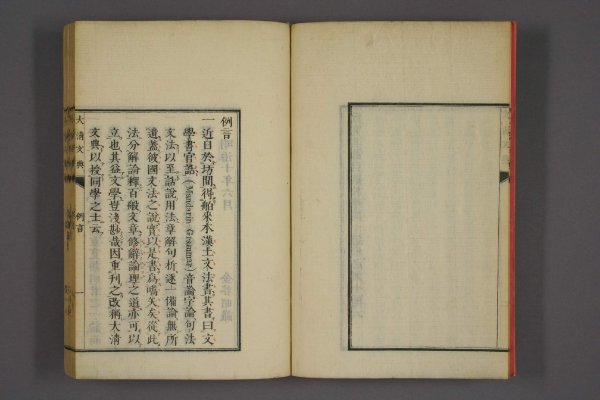 例言
一近日於坊間得舶來本漢土文法書其書曰文
學書官話(Mandarin Grammar)音論字論句法
文法以至話說用法章解句析逐一備論無所
遺蓋彼國文法之說實以是書為嚆矢矣從此
法分解論釋百般文章修辭論理之道亦可以
立也其益文學豈淺尠哉因重刊之改稱大清
文典以授同學之士云
大清文典
例言
一